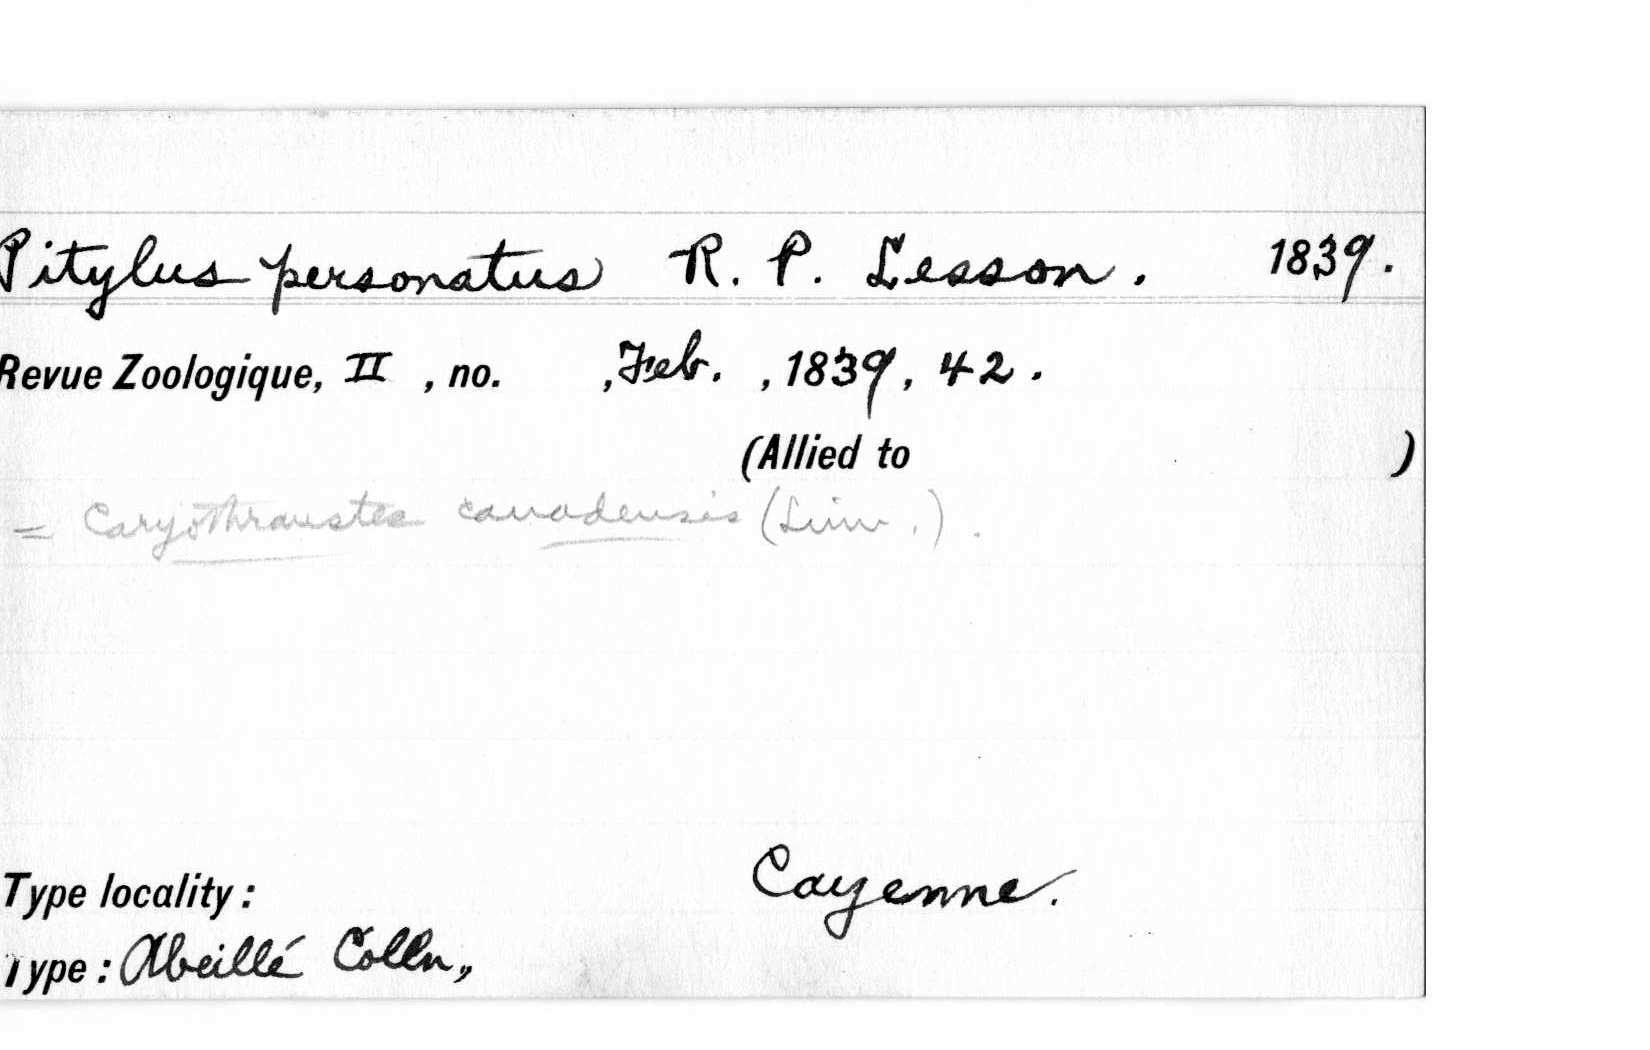 Pitylus personatus R. P. Lesson. 1839.
Revue Zoologique, II , no. , Feb. , 1839, 42.
(Allied to )
= Caryothraustes canadensis (Linn.).
Type locality: Cayenne.
Type: Abeillé Colln,,